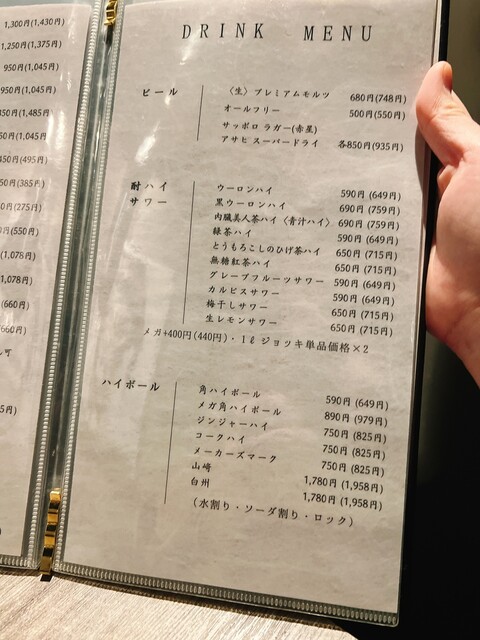 1,300円(1,430円)
1,250円(1,375円)
950円(1,045円)
950円(1,045円)
50円(1,485円)
50円(1,045円
450円(495円)
50円(385円)
0円(275円)
0円(550円)
(1,078円)
1,078円)
(660円)
660円)
可
5円)
DRINK MENU
ビール
〈生〉プレミアムモルツ 680円(748円)
オールフリー 500円(550円)
サッポロ ラガー(赤星)
アサヒ スーパードライ 各850円(935円)
酎ハイ
サワー
ウーロンハイ 590円 (649円)
黒ウーロンハイ 690円 (759円)
内臓美人茶ハイ〈青汁ハイ〉 690円 (759円)
緑茶ハイ 590円 (649円)
とうもろこしのひげ茶ハイ 650円 (715円)
無糖紅茶ハイ 650円 (715円)
グレープフルーツサワー 590円 (649円)
カルピスサワー 590円 (649円)
梅干しサワー 650円 (715円)
生レモンサワー 650円 (715円)
メガ+400円(440円)・1ℓ ジョッキ単品価格×2
ハイボール
角ハイボール 590円 (649円)
メガ角ハイボール 890円 (979円)
ジンジャーハイ 750円 (825円)
コークハイ 750円 (825円)
メーカーズマーク 750円 (825円)
山崎 1,780円 (1,958円)
白州 1,780円 (1,958円)
(水割り・ソーダ割り・ロック)